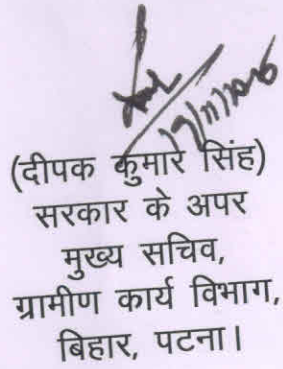 (दीपक कुमार सिंह)
सरकार के अपर
मुख्य सचिव,
ग्रामीण कार्य विभाग,
बिहार, पटना।